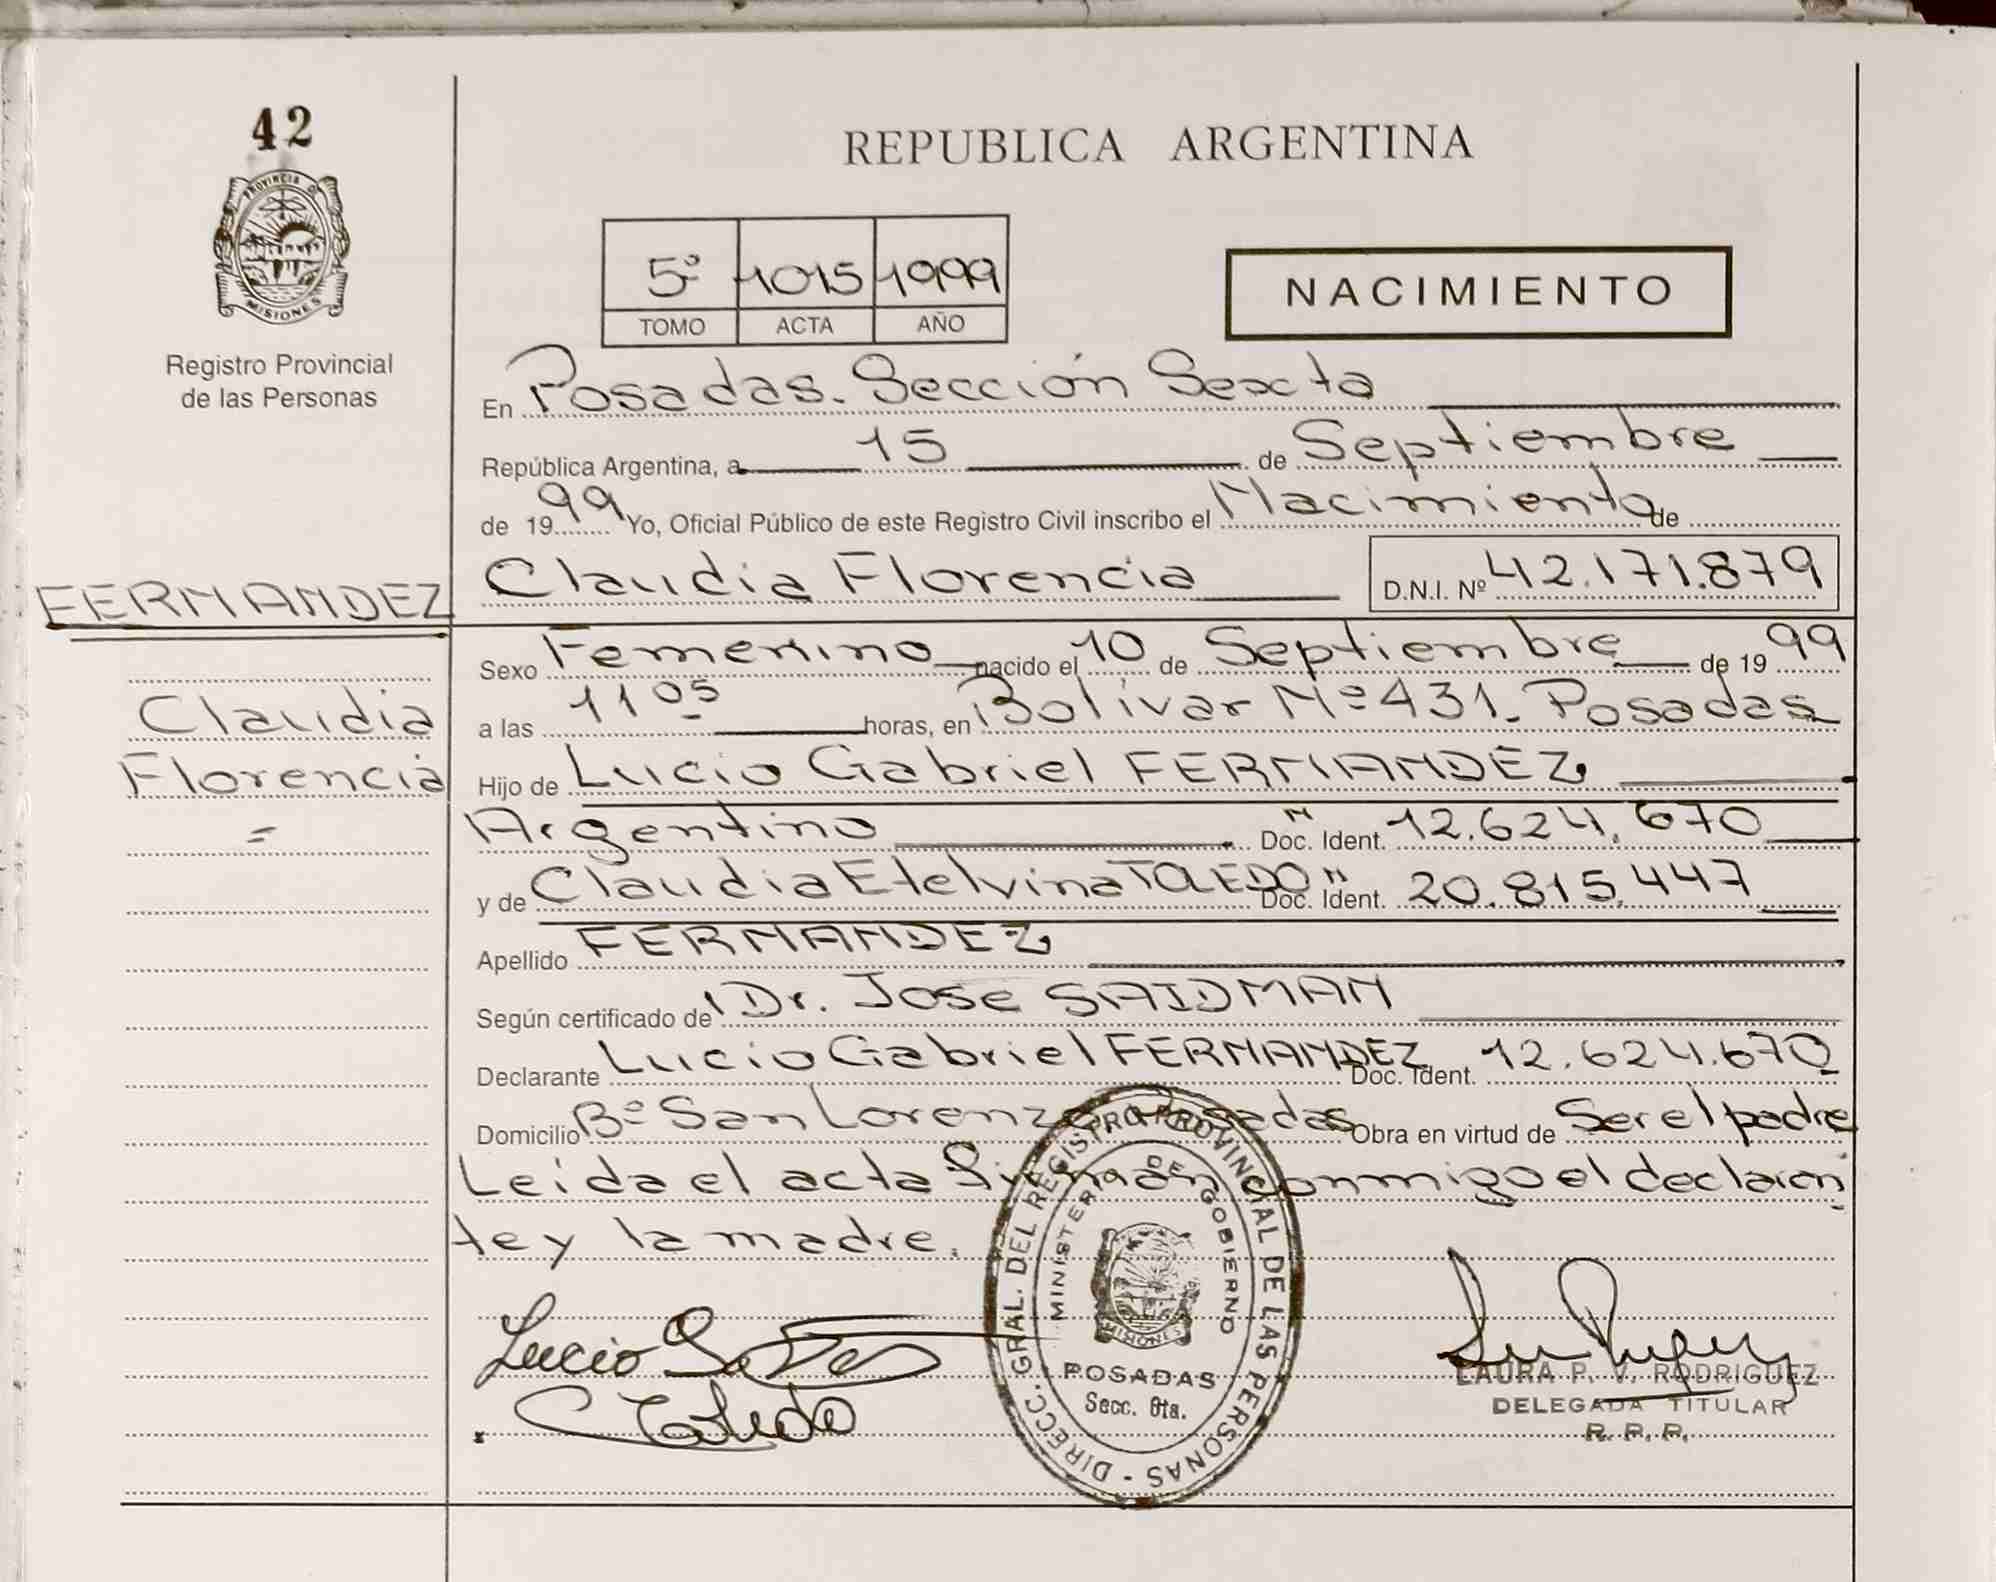 42
PROVINCIA D
MISIONES
Registro Provincial
de las Personas
FERNANDEZ
Claudia
Florencia
=
REPUBLICA ARGENTINA
5º 1015 1999
TOMO ACTA AÑO
NACIMIENTO
En Posadas. Sección Sexta
República Argentina, a 15 de Septiembre
de 1999 Yo, Oficial Público de este Registro Civil inscribo el Nacimiento de
Claudia Florencia D.N.I. Nº 42.171.879
Sexo Femenino nacido el 10 de Septiembre de 1999
a las 11 05 horas, en Bolívar Nº 431. Posadas
Hijo de Lucio Gabriel FERNANDEZ
Argentino Doc. Ident. 12.624.670
y de Claudia Etelvina TOLEDO Doc. Ident. 20.815.447
Apellido FERNANDEZ
Según certificado de Dr. Jose SAIDMAN
Declarante Lucio Gabriel FERNANDEZ Doc. Ident. 12.624.670
Domicilio Bº San Lorenzo Posadas Obra en virtud de Ser el padre
Leida el acta firman conmigo el declaran
te y la madre.
DIRECC. GRAL. DEL REGISTRO PROVINCIAL DE LAS PERSONAS -
MINISTER DE GOBIERNO
MISIONES
POSADAS
Secc. 6ta.
Lucio
C Toledo
LAURA P. V. RODRIGUEZ
DELEGADA TITULAR
R. P. P.